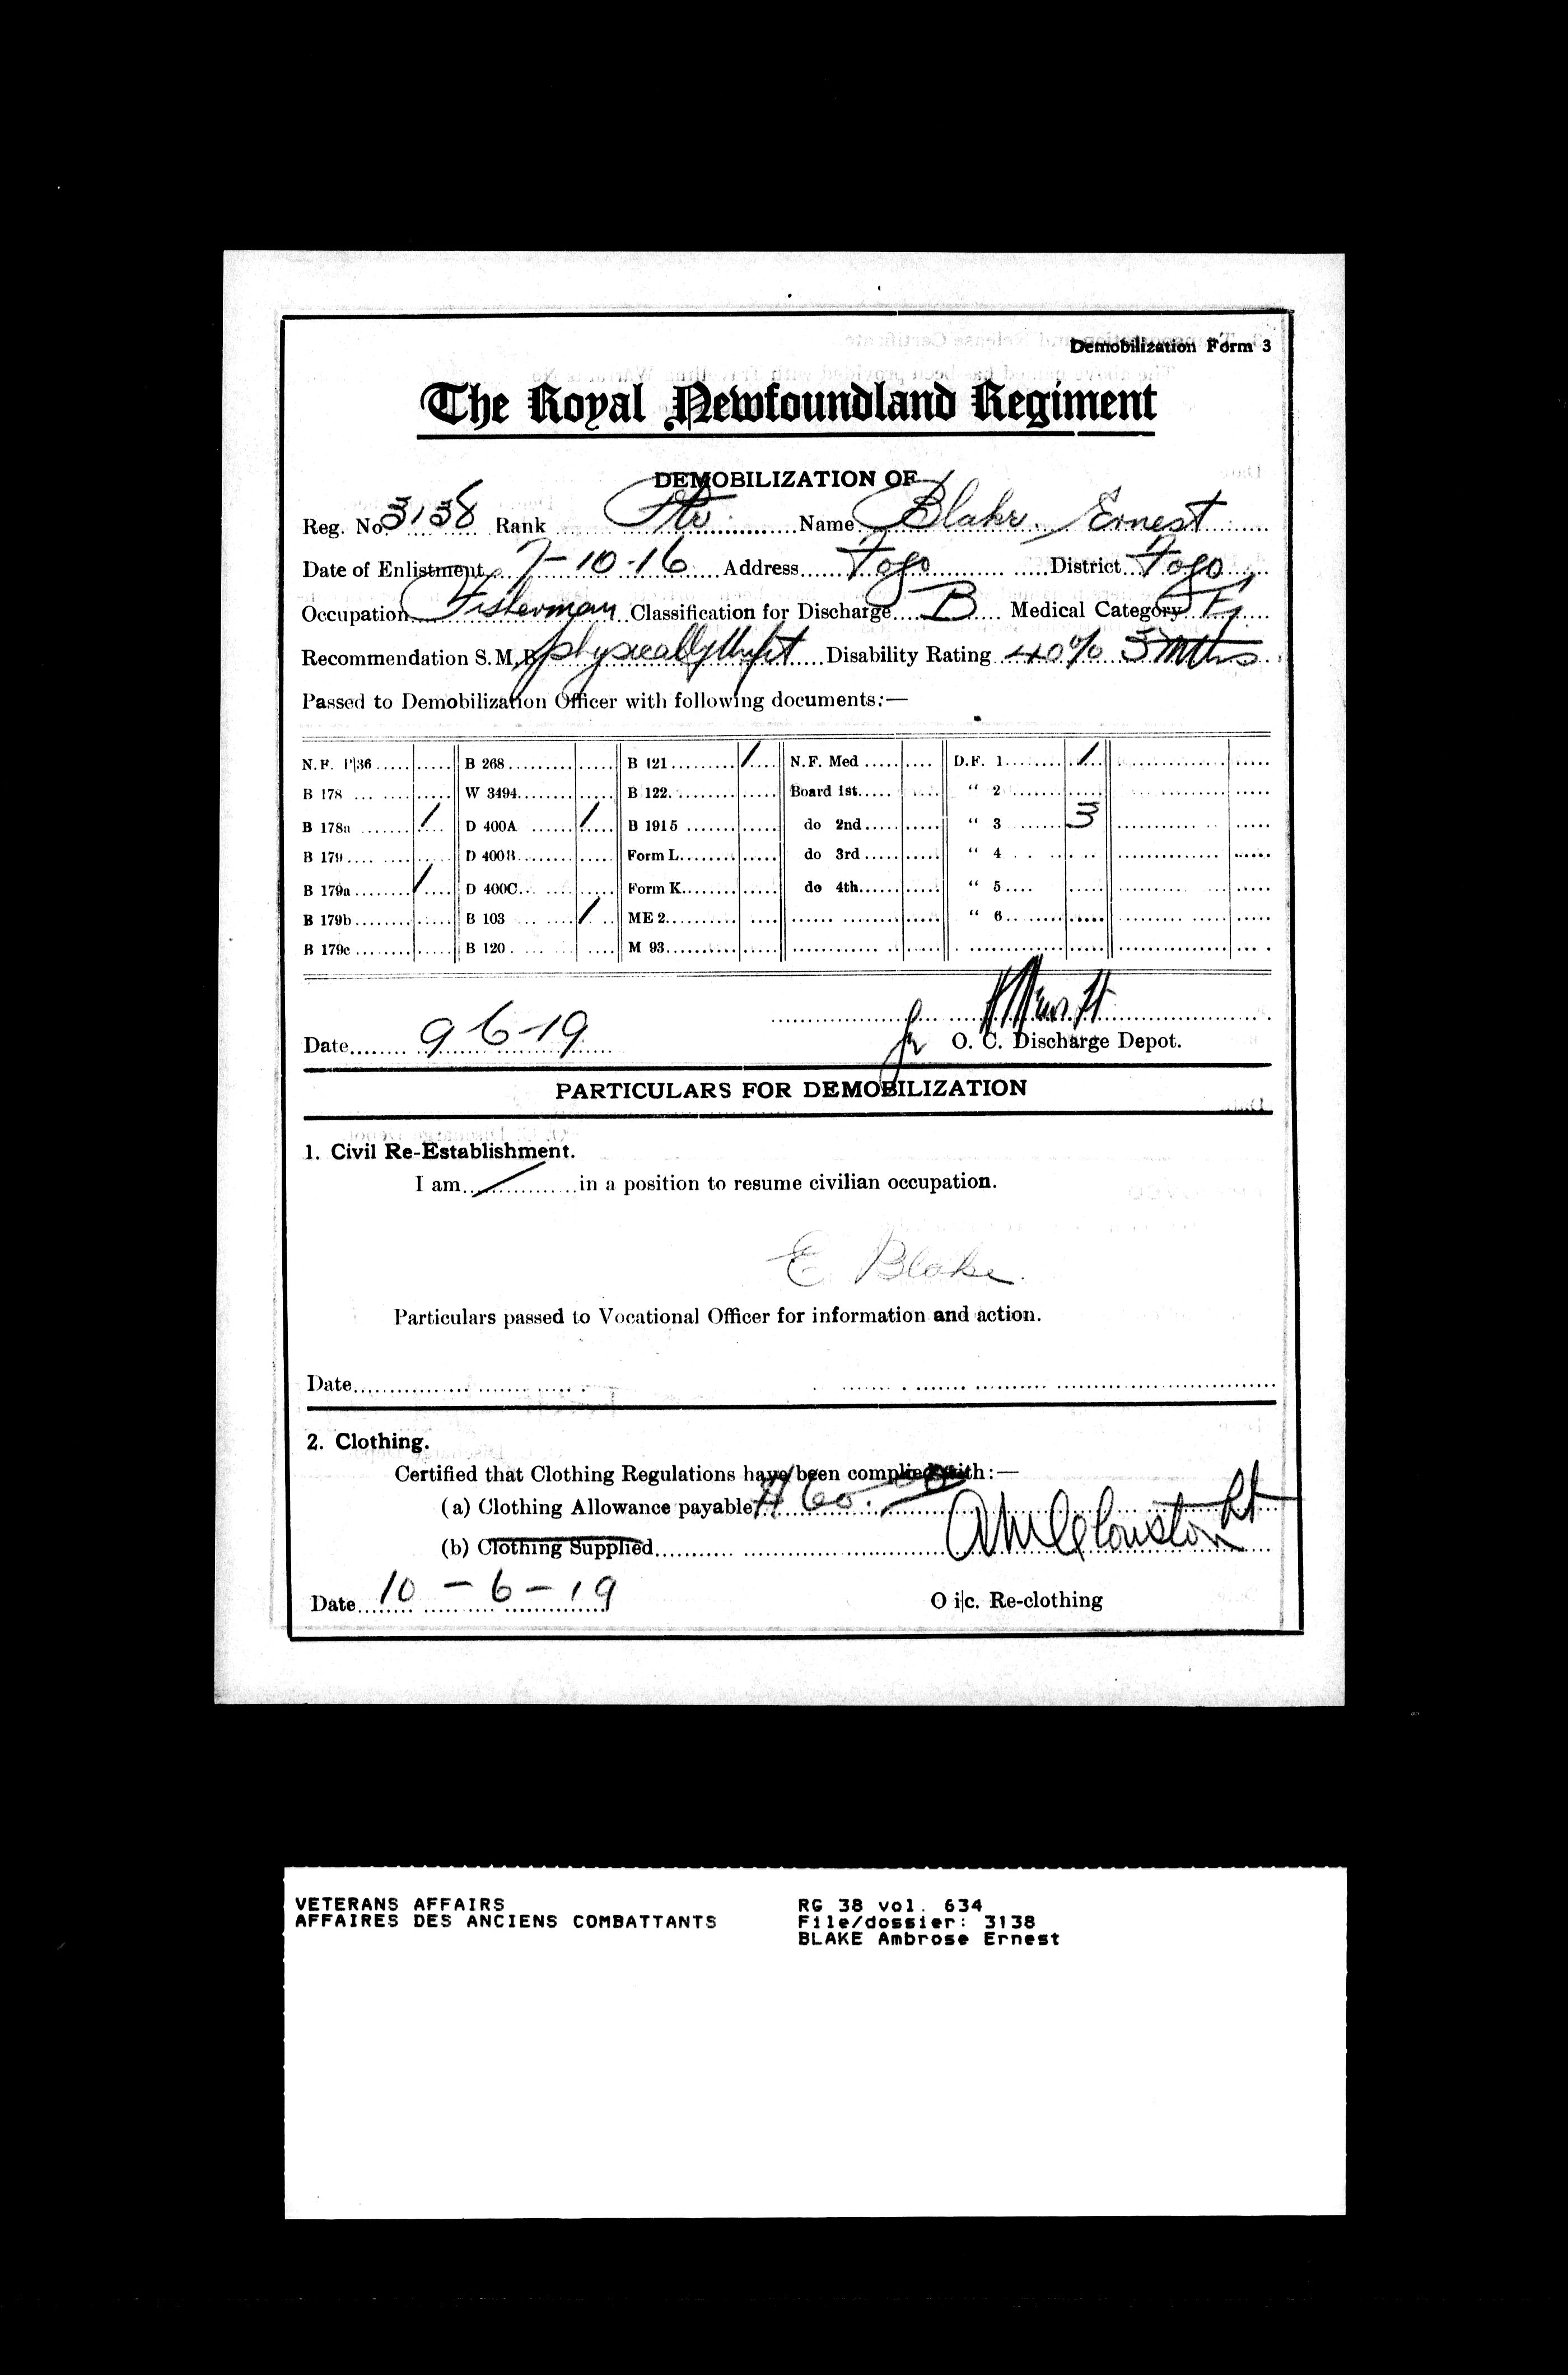 Demobilization Form 3
The Royal Newfoundland Regiment
DEMOBILIZATION OF
Reg. No. 3138 Rank Pte Name Blake, Ernest
Date of Enlistment 7-10-16 Address Fogo District Fogo
Occupation Fisherman Classification for Discharge B Medical Category E1
Recommendation S.M.B. physically Unfit Disability Rating 40% 3 mths
Passed to Demobilization Officer with following documents:—
N.F. P|36 B 268 B 121 / N.F. Med D.F. 1 /
B 178 W 3494 B 122 Board 1st " 2
B 178a / D 400A / B 1915 do 2nd " 3 3
B 179 D 400B Form L do 3rd " 4
B 179a / D 400C Form K do 4th " 5
B 179b B 103 / ME 2 " 6
B 179c B 120 M 93
Date 9 6-19 for O. C. Discharge Depot.
PARTICULARS FOR DEMOBILIZATION
1. Civil Re-Establishment.
I am / in a position to resume civilian occupation.
E Blake.
Particulars passed to Vocational Officer for information and action.
Date
2. Clothing.
Certified that Clothing Regulations have been complied with:—
(a) Clothing Allowance payable $60.00
(b) Clothing Supplied
Date 10-6-19 O i|c. Re-clothing
VETERANS AFFAIRS RG 38 vol. 634
AFFAIRES DES ANCIENS COMBATTANTS File/dossier: 3138
BLAKE Ambrose Ernest